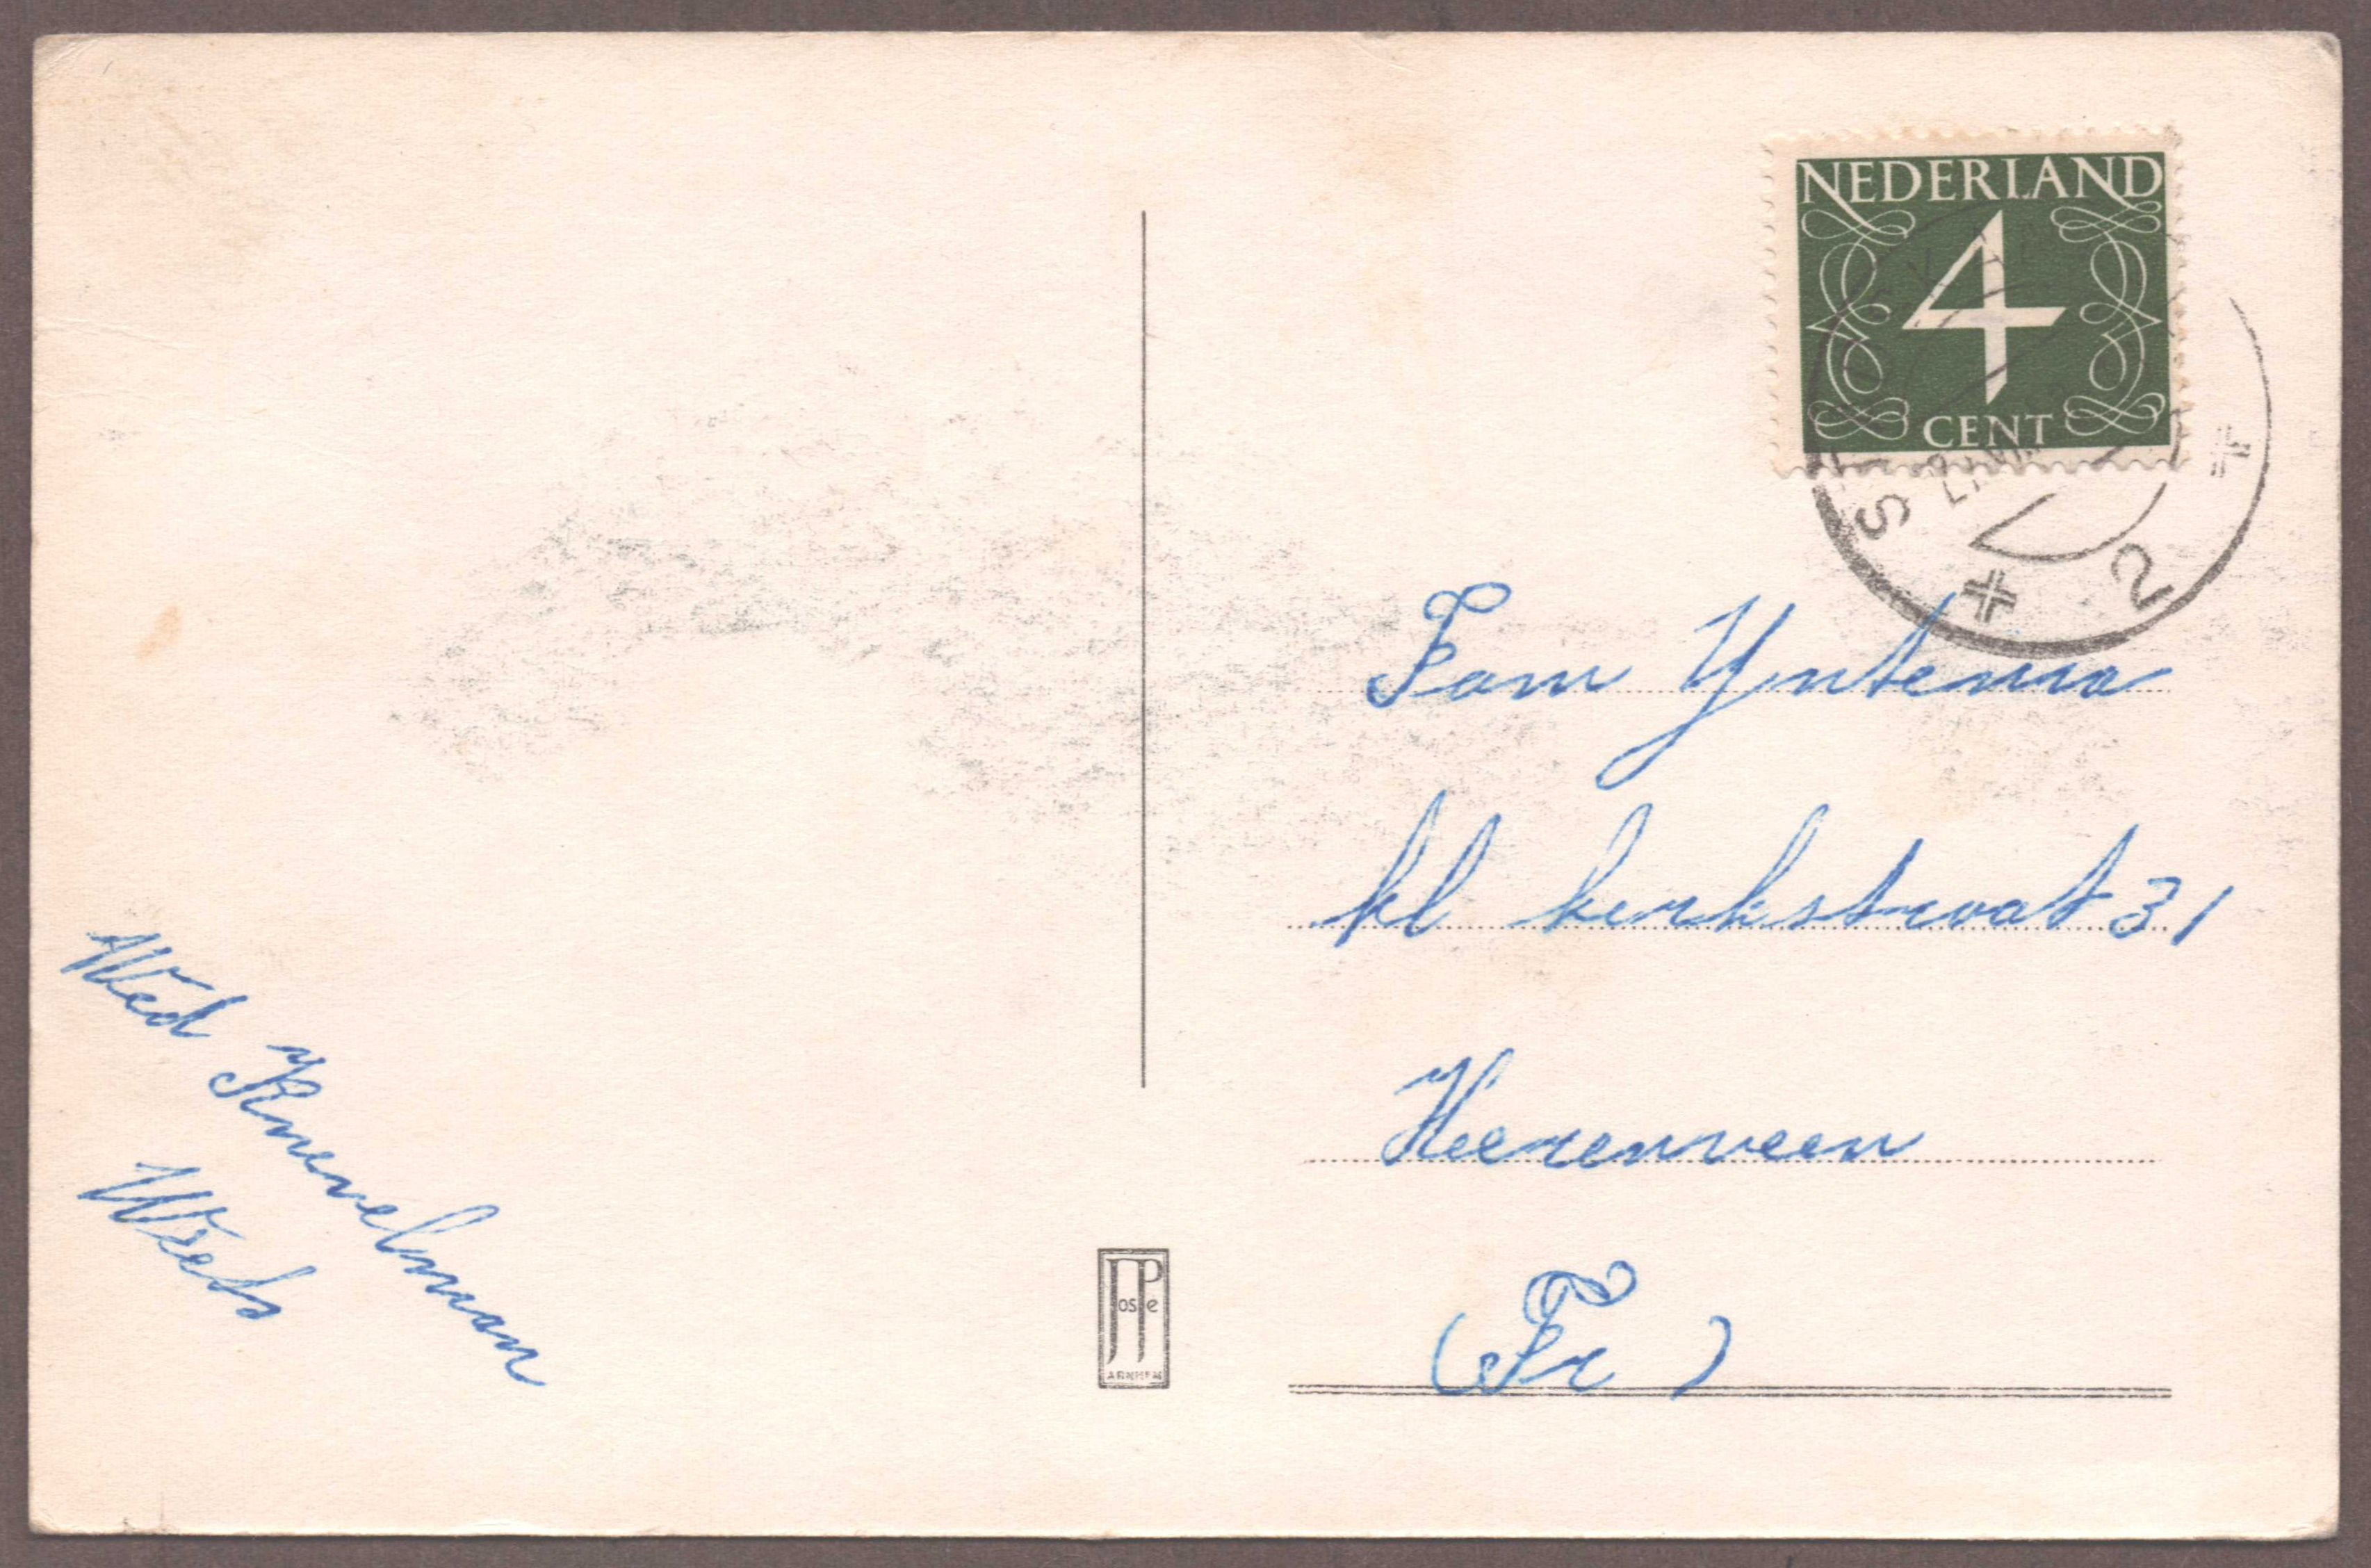 NEDERLAND
4
CENT
S
2
Fam Yntema
kl kerkstraat 31
Heerenveen
(Fr)
Wed Knevelman
JP
osTe
ARNHEM